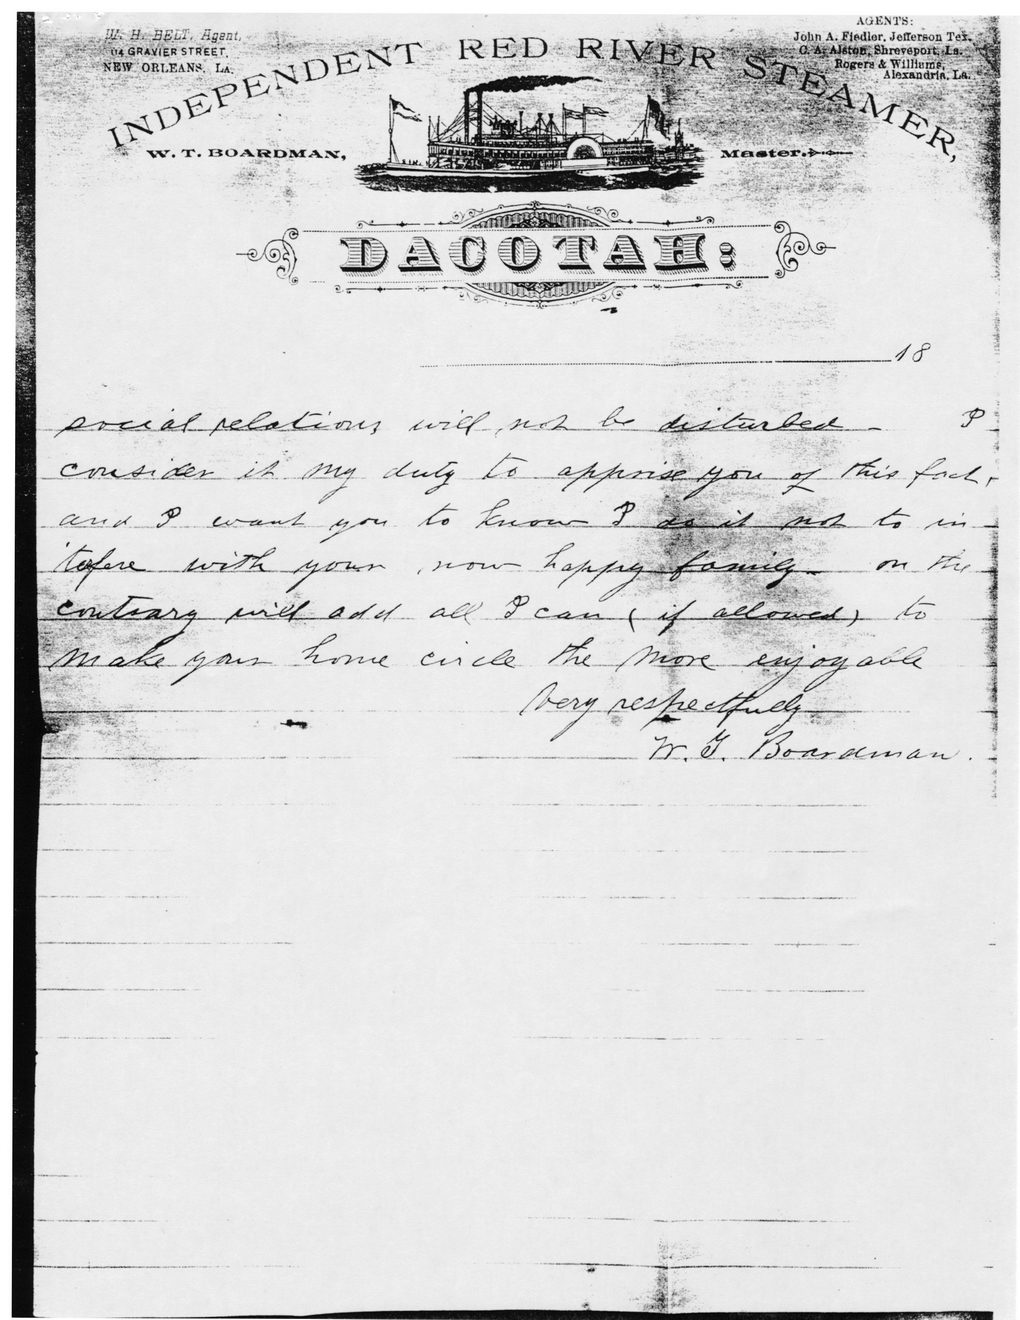 W. H. BELT, Agent,
114 GRAVIER STREET,
NEW ORLEANS, LA.
AGENTS:
John A. Fiedler, Jefferson Tex.
C. A. Alston, Shreveport, La.
Rogers & Williams,
Alexandria, La.
INDEPENDENT RED RIVER STEAMER,
W. T. BOARDMAN, Master.
DACOTAH:
18
social relations will not be disturbed - I
consider it my duty to apprise you of this fact,
and I want you to know I do it not to in
tefere with your now happy family - on the
contrary will add all I can (if allowed) to
make your home circle the more enjoyable
Very respectfully
W. T. Boardman.